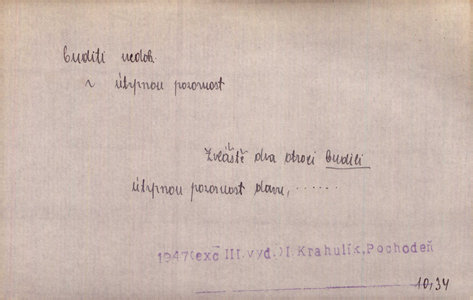 buditi nedok.
~ útrpnou pozornost
Zvláště dva otroci budili
útrpnou pozornost davu, ......
1947(exc III.vyd.)I.Krahulík,Pochodeň
10,34